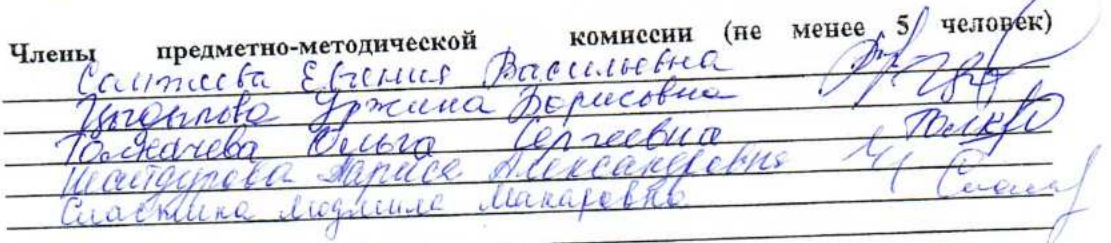 Члены предметно-методической комиссии (не менее 5 человек)
Евгения Васильевна
Цыдыпова Уржина Борисовна
Толкачева Ольга Сергеевна Толк
Шайдурова Лариса Александровна
Сласкина Людмила Макаровна